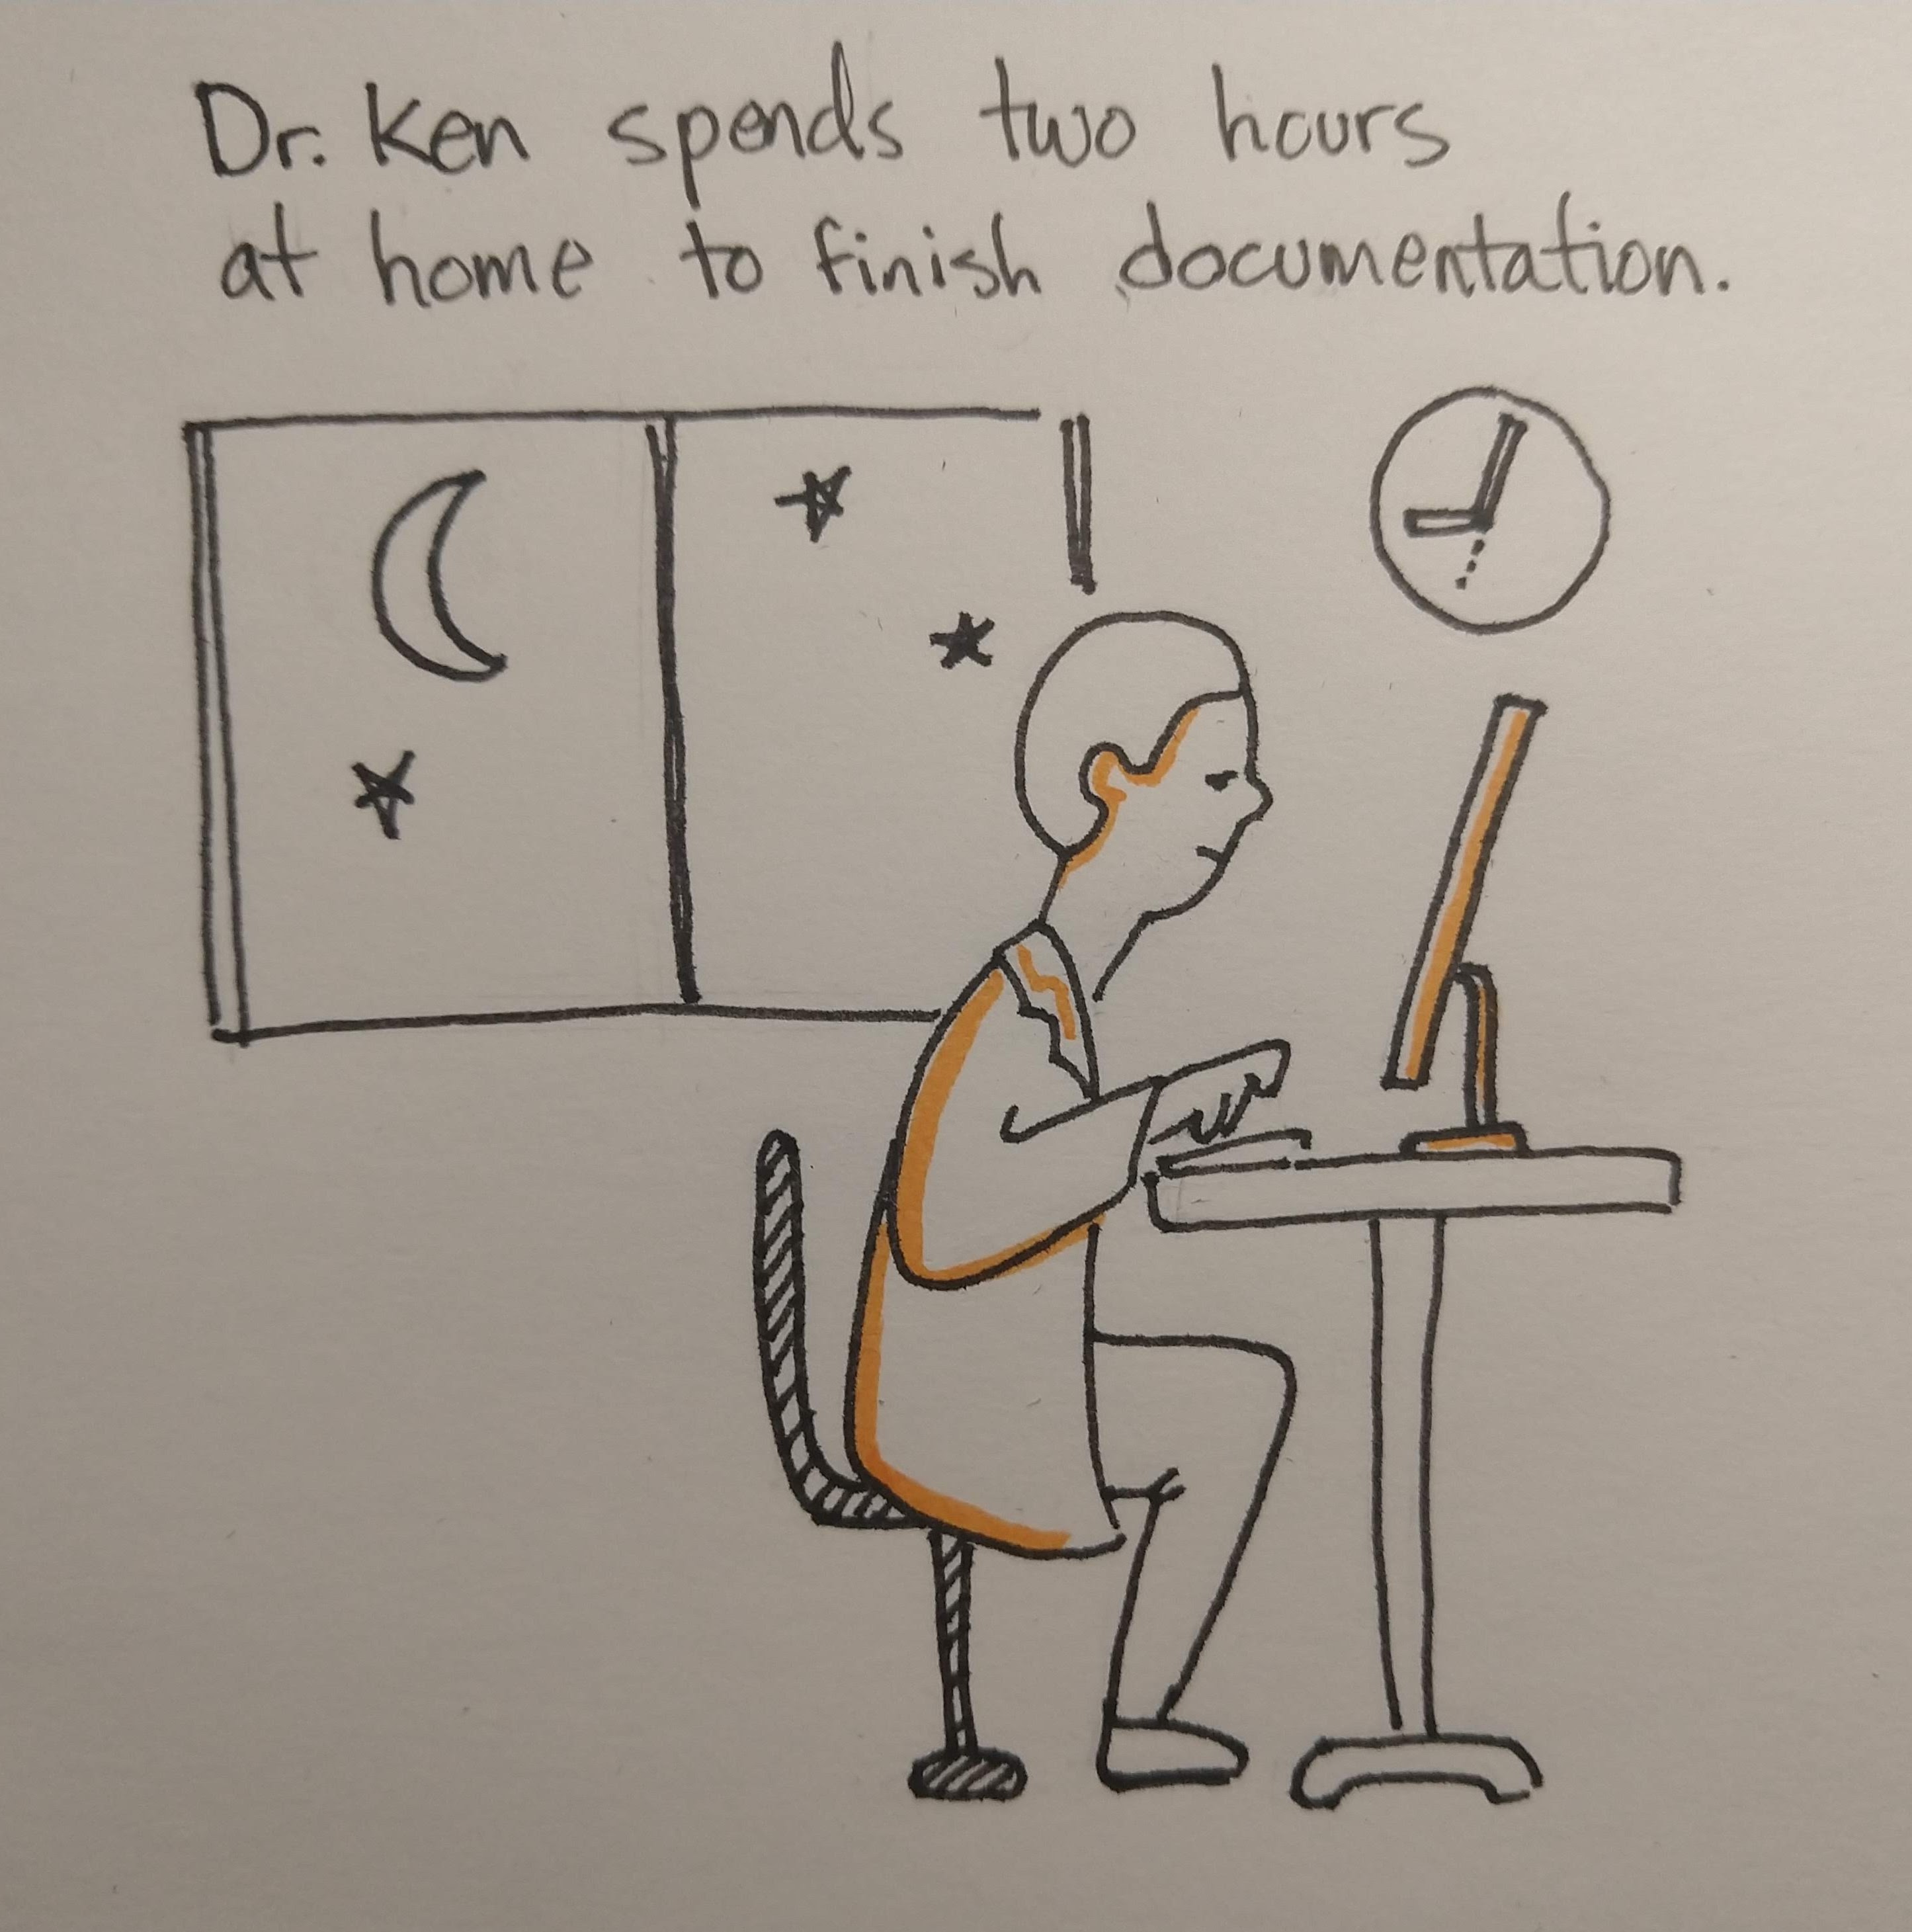 Dr. Ken spends two hours
at home to finish documentation.